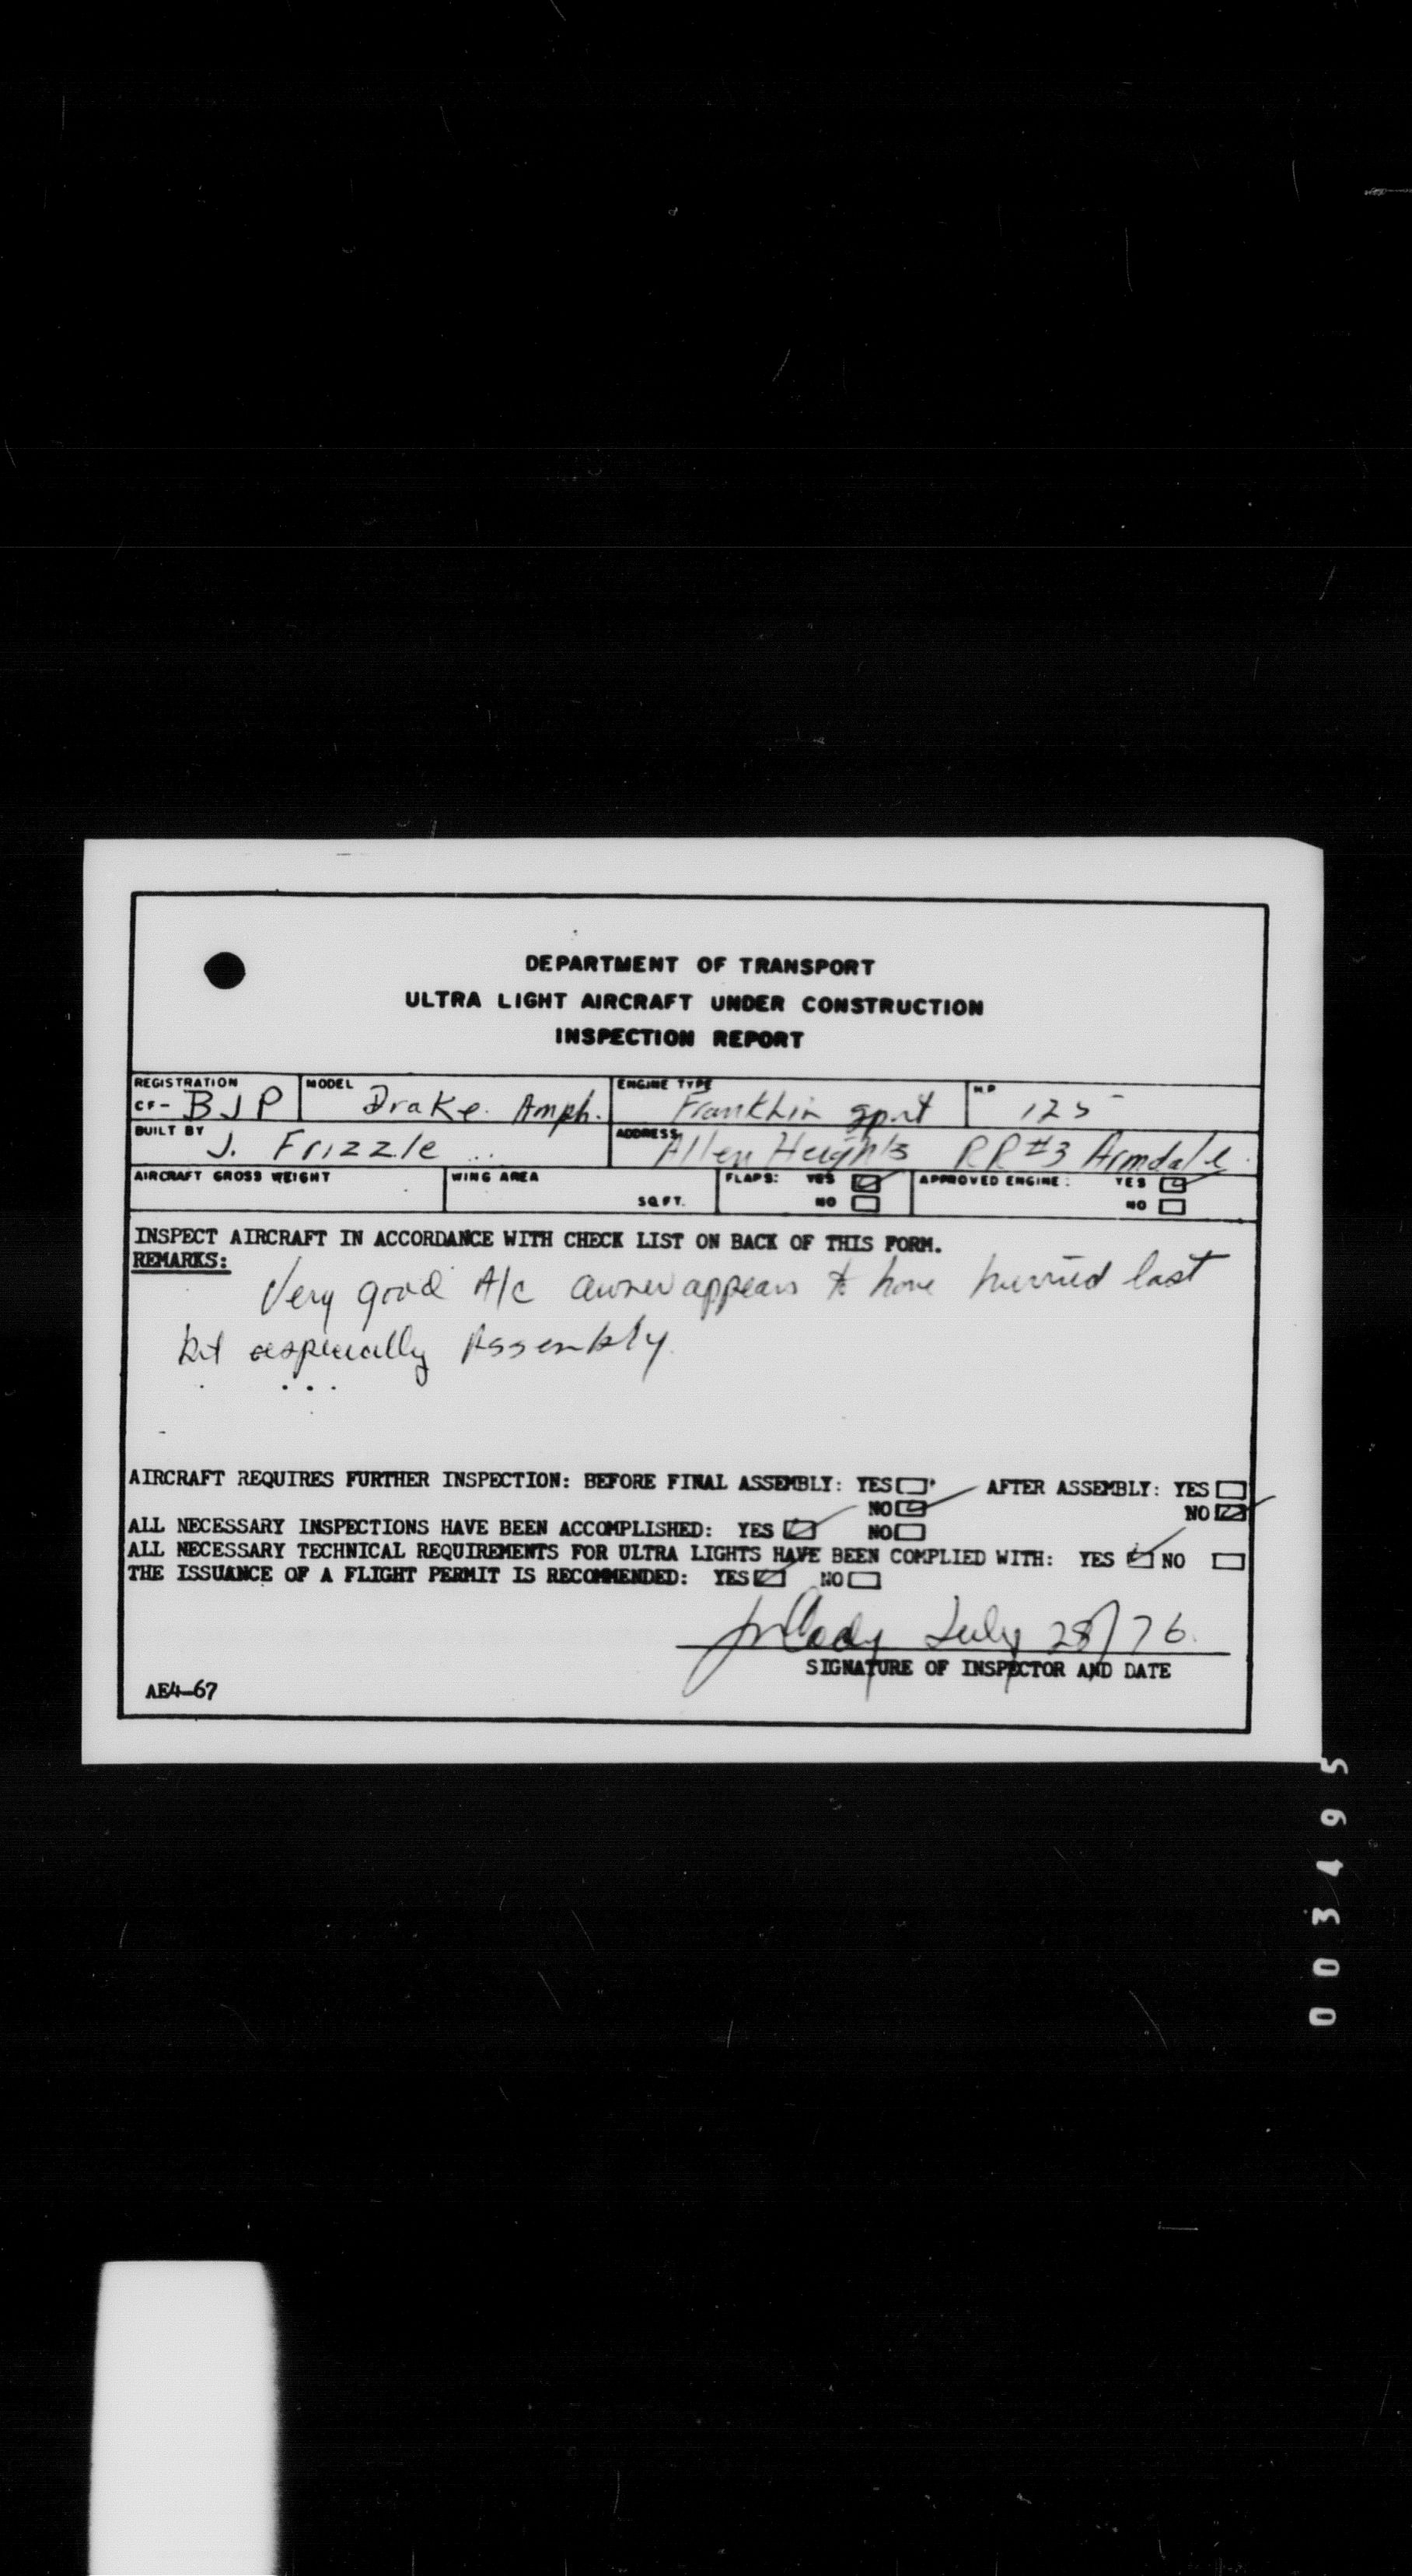 DEPARTMENT OF TRANSPORT
ULTRA LIGHT AIRCRAFT UNDER CONSTRUCTION
INSPECTION REPORT
REGISTRATION MODEL ENGINE TYPE HP
CF- BJP Drake Amph. Franklin Sport 125
BUILT BY ADDRESS
J. Frizzle Allen Heights RR #3 Armdale
AIRCRAFT GROSS WEIGHT WING AREA FLAPS: YES APPROVED ENGINE: YES
SQ.FT. NO NO
INSPECT AIRCRAFT IN ACCORDANCE WITH CHECK LIST ON BACK OF THIS FORM.
REMARKS:
Very good A/c owner appears to have hurried last
bit especially Assembly.
AIRCRAFT REQUIRES FURTHER INSPECTION: BEFORE FINAL ASSEMBLY: YES AFTER ASSEMBLY: YES
NO NO
ALL NECESSARY INSPECTIONS HAVE BEEN ACCOMPLISHED: YES NO
ALL NECESSARY TECHNICAL REQUIREMENTS FOR ULTRA LIGHTS HAVE BEEN COMPLIED WITH: YES NO
THE ISSUANCE OF A FLIGHT PERMIT IS RECOMMENDED: YES NO
July 28/76
SIGNATURE OF INSPECTOR AND DATE
AE4-67
003495